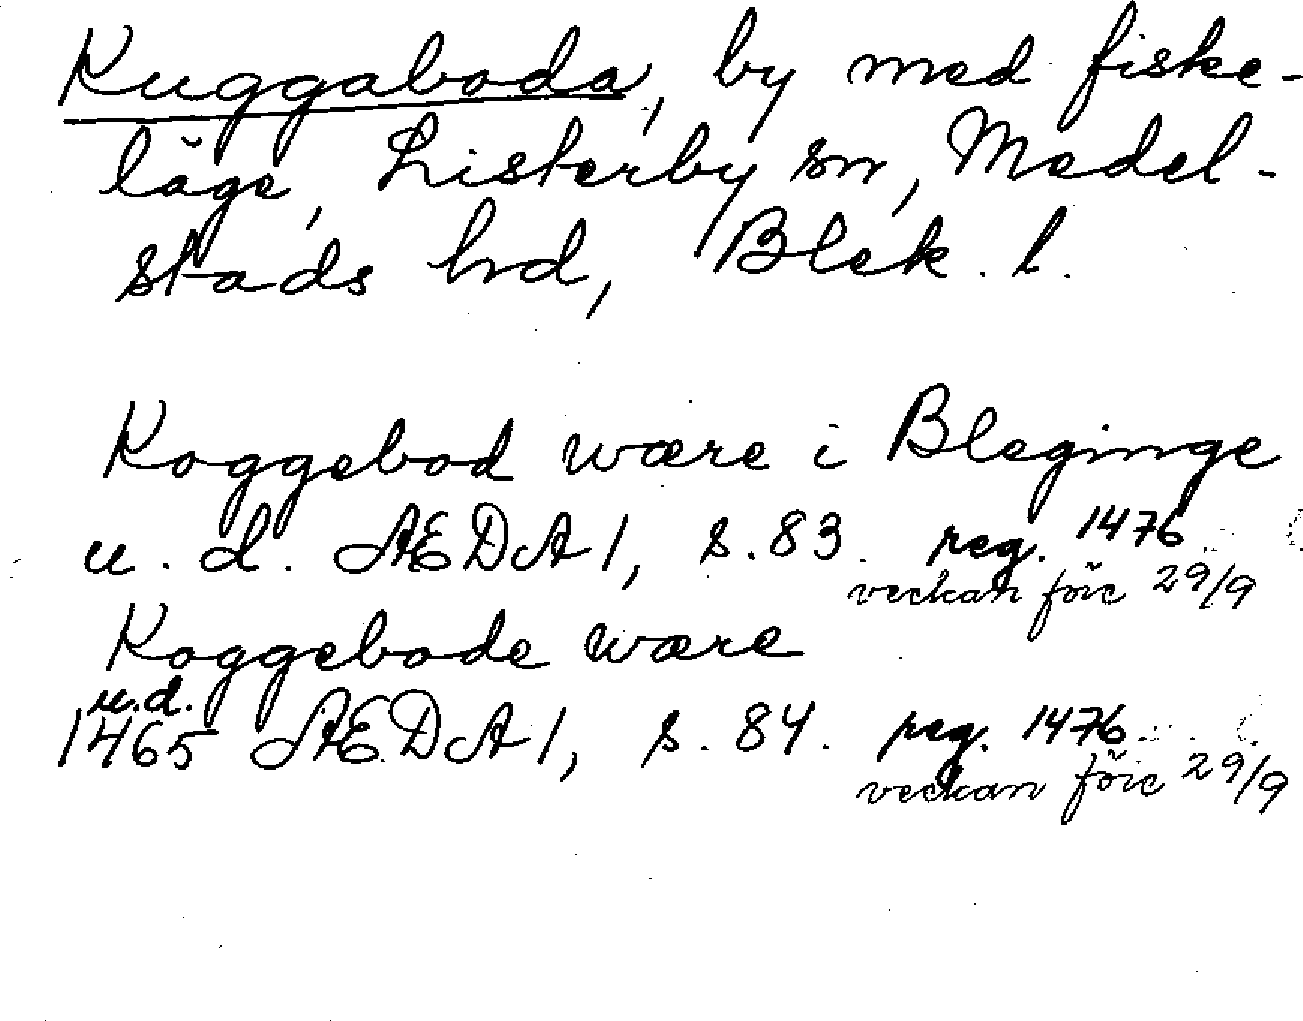 Kuggaboda, by med fiske-
läge, Listerby sn, Medel-
stads hd, Blek. l.
Koggebod wære i Bleginge
u. d. ÆDA 1, s. 83. reg. 1476
veckan före 29/9
Koggebode wære
u.d.
1465 ÆDA 1, s. 84. reg. 1476
veckan före 29/9